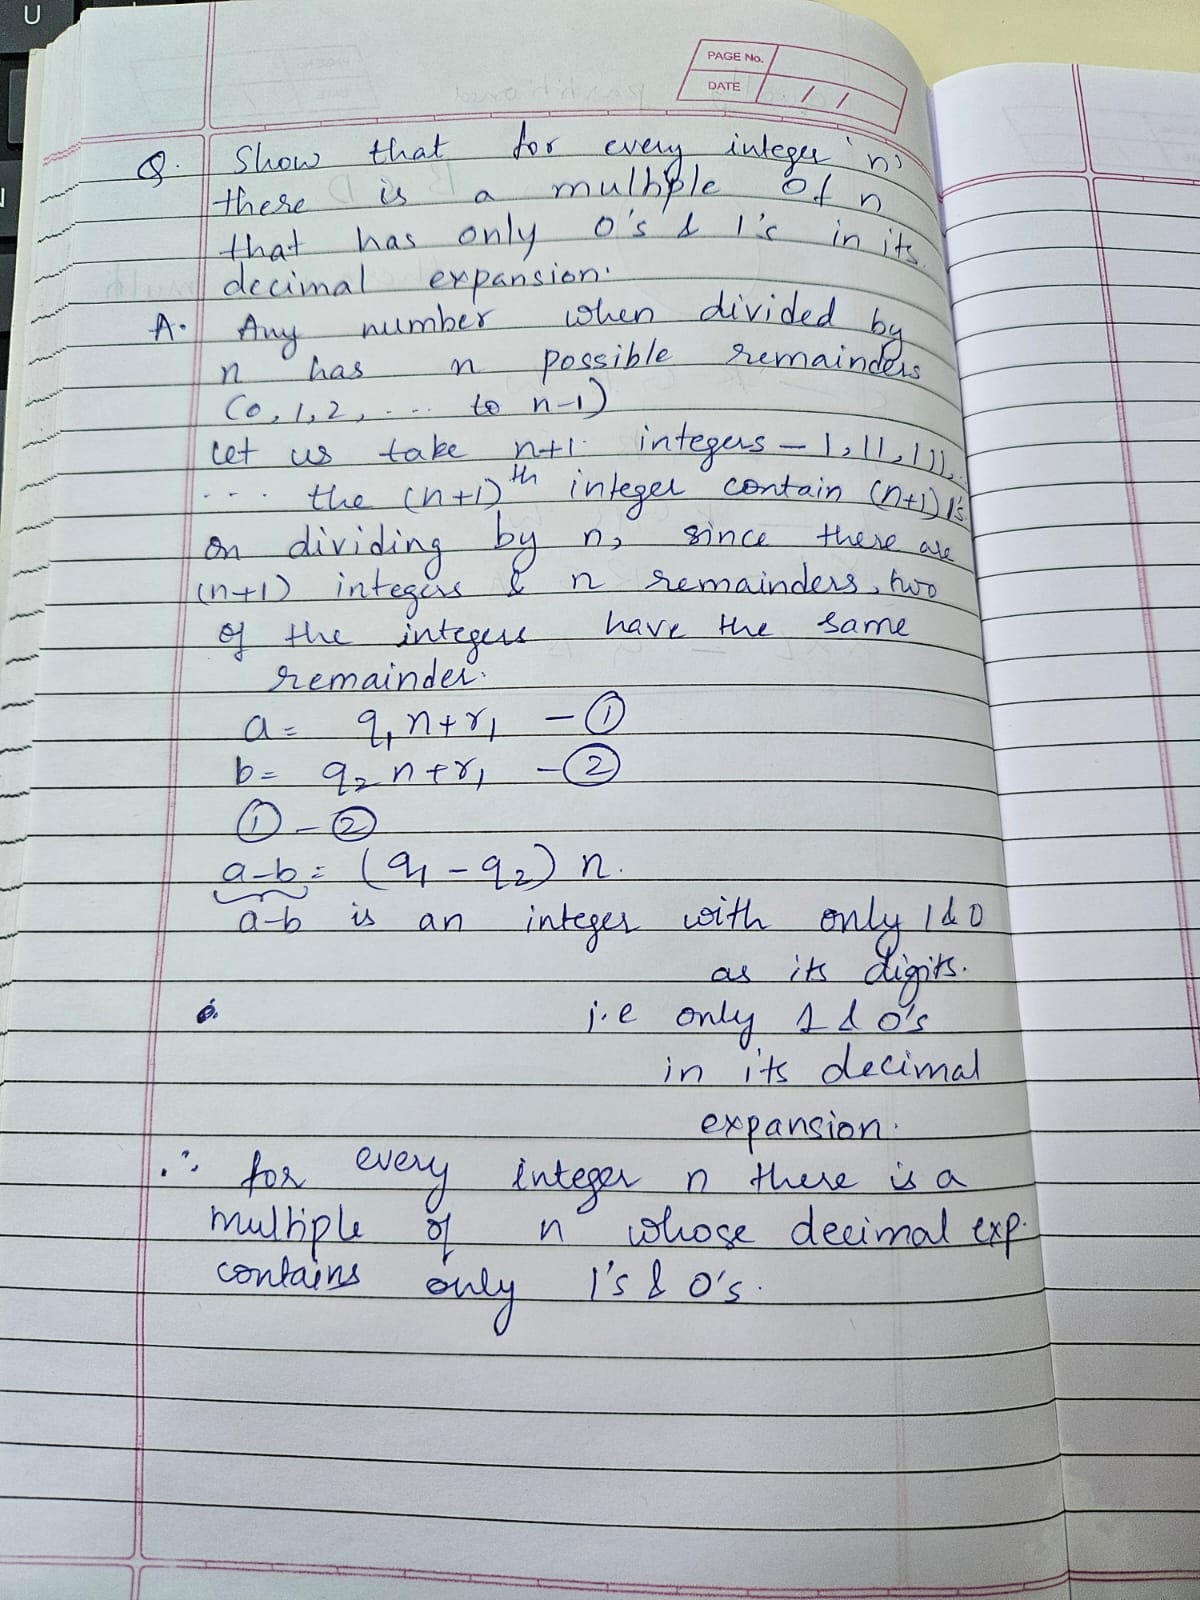 U
N
PAGE No.
DATE / /
Q. Show that for every integer 'n'
there is a multiple of n
that has only 0's & 1's in its
decimal expansion.
A. Any number when divided by
n has n possible remainders
(0, 1, 2, ... to n-1)
Let us take n+1 integers - 1, 11, 111, ..
.... the (n+1)th integer contain (n+1) 1's.
on dividing by n, since there are
(n+1) integers & n remainders, two
of the integers have the same
remainder.
a = q₁n+r₁ - ①
b = q₂n+r₁ - ②
① - ②
a-b = (q₁ - q₂) n.
a-b is an integer with only 1 & 0
as its digits.
i.e only 1 & 0's
in its decimal
expansion.
∴ for every integer n there is a
multiple of n whose decimal exp.
contains only 1's & 0's.